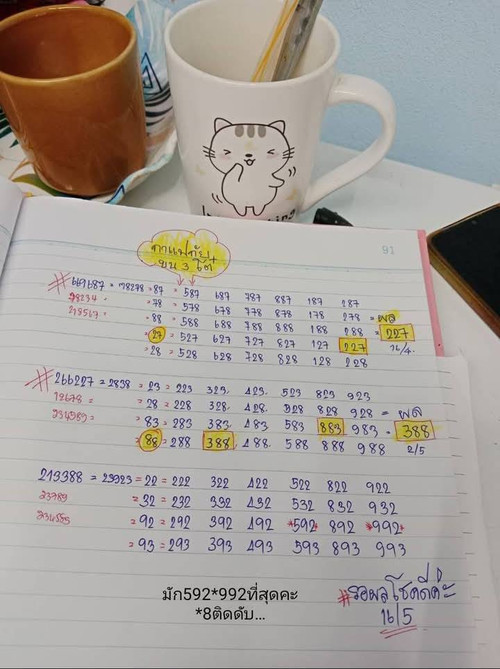 กาแฟภัย
บน 3 โต๊
91
#667687 = 78278 = 87 = 587 687 787 887 187 287
78234 " = 78 = 578 678 778 878 178 278 = ผล
= 88 = 588 688 788 888 188 288 = 227
= 27 = 527 627 727 827 127 227 16/4
= 28 = 528 628 728 828 128 228
#266227 = 2838 = 23 = 223 323 423 523 823 923
12678 = = 28 = 228 328 428 528 828 928 = ผล
234989 = = 83 = 283 383 483 583 883 983 = 388
= 88 = 288 388 488 588 888 988 2/5
213388 = 23923 = 22 = 222 322 422 522 822 922
23789 = 32 = 232 332 432 532 832 932
= 92 = 292 392 492 *592* 892 *992*
= 93 = 293 393 493 593 893 993
#รอผลโชคดีค่ะ
16/5
มัก592*992ที่สุดคะ
*8ติดดับ...